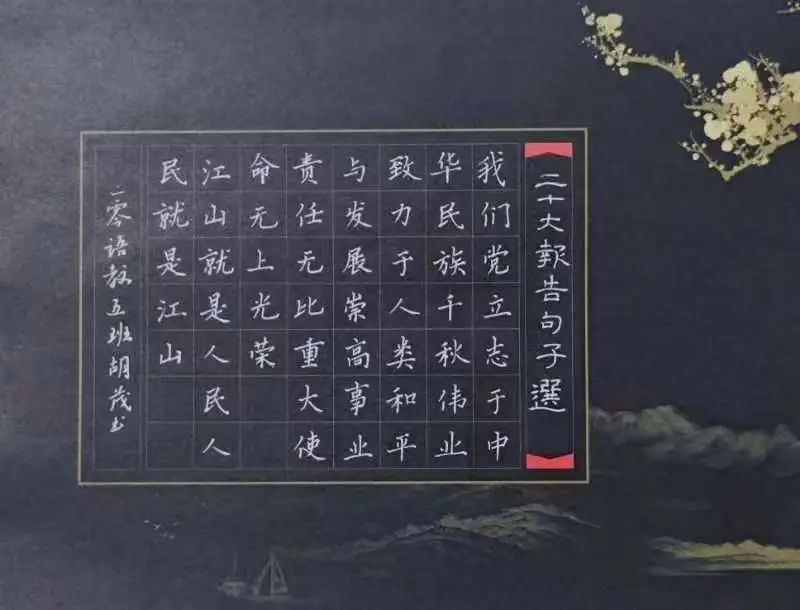 二十大報告句子選
我们党立志于中
华民族千秋伟业
致力于人类和平
与发展崇高事业
责任无比重大使
命无上光荣
江山就是人民人
民就是江山
二零语教五班胡茂书